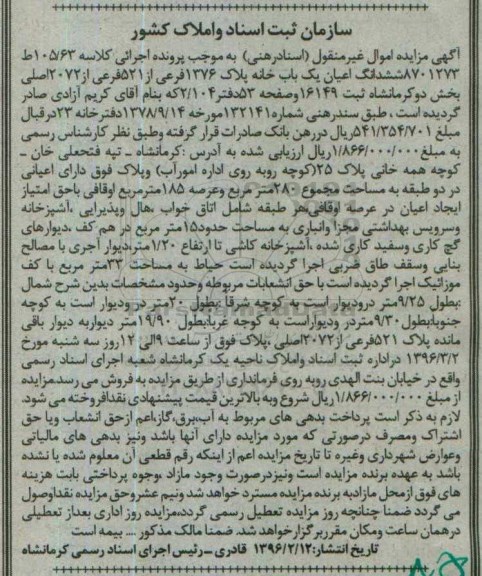 سازمان ثبت اسناد واملاک کشور
آگهی مزایده اموال غیرمنقول (اسنادرهنی) به موجب پرونده اجرائی کلاسه ۱۰۵/۶۳ط
۸۷۰۱۲۷۳ششدانگ اعیان یک باب خانه پلاک ۱۳۷۶فرعی از۵۲۱فرعی از۲۰۷۲اصلی
بخش دوکرمانشاه ثبت ۱۶۱۴۹وصفحه ۵۳دفتر۲/۱۰۴که بنام آقای کریم آزادی صادر
گردیده است . طبق سندرهنی شماره۱۳۲۱۴۱مورخه ۱۳۷۸/۹/۱۴دفترخانه ۲۳درقبال
مبلغ ۵۴۱/۳۵۴/۷۰۱ریال دررهن بانک صادرات قرار گرفته وطبق نظر کارشناس رسمی
به مبلغ۱/۸۶۶/۰۰۰/۰۰۰ریال ارزیابی شده به آدرس :کرمانشاه ـ تپه فتحعلی خان ـ
کوچه همه خانی پلاک ۲۵(کوچه روبه روی اداره امورآب) وپلاک فوق دارای اعیانی
در دو طبقه به مساحت مجموع ۲۸۰متر مربع وعرصه ۱۸۵مترمربع اوقافی باحق امتیاز
ایجاد اعیان در عرصه اوقافی،هر طبقه شامل اتاق خواب ،هال وپذیرایی ،آشپزخانه
وسرویس بهداشتی مجزا وانباری به مساحت حدود۱۵متر مربع در هم کف ،دیوارهای
گچ کاری وسفید کاری شده ،آشپزخانه کاشی تا ارتفاع ۱/۲۰متر،دیوار آجری با مصالح
بنایی وسقف طاق ضربی اجرا گردیده است حیاط به مساحت ۳۳متر مربع با کف
موزائیک اجرا گردیده است با حق انشعابات مربوطه وحدود مشخصات بدین شرح شمال
:بطول ۹/۲۵متر درودیوار است به کوچه شرقا :بطول ۲۰متر در ودیوار است به کوچه
جنوبا:بطول۹/۳۰متردر ودیواراست به کوچه غربا:بطول ۱۹/۹۰متر دیواربه دیوار باقی
مانده پلاک ۵۲۱فرعی از۲۰۷۲اصلی .پلاک فوق از ساعت ۹الی ۱۲روز سه شنبه مورخ
۱۳۹۶/۳/۲ دراداره ثبت اسناد واملاک ناحیه یک کرمانشاه شعبه اجرای اسناد رسمی
واقع در خیابان بنت الهدی روبه روی فرمانداری از طریق مزایده به فروش می رسد.مزایده
از مبلغ ۱/۸۶۶/۰۰۰/۰۰۰ریال شروع وبه بالاترین قیمت پیشنهادی نقدافروخته می شود.
لازم به ذکر است پرداخت بدهی های مربوط به آب،برق،گاز،اعم ازحق انشعاب ویا حق
اشتراک ومصرف درصورتی که مورد مزایده دارای آنها باشد ونیز بدهی های مالیاتی
وعوارض شهرداری وغیره تا تاریخ مزایده اعم از اینکه رقم قطعی آن معلوم شده یا نشده
باشد به عهده برنده مزایده است ونیزدرصورت وجود مازاد ،وجوه پرداختی بابت هزینه
های فوق ازمحل مازادبه برنده مزایده مسترد خواهد شد ونیم عشر وحق مزایده نقداوصول
می گردد ضمنا چنانچه روز مزایده تعطیل رسمی گردد،مزایده روز اداری بعداز تعطیلی
درهمان ساعت ومکان مقرربرگزارخواهد شد. ضمنا مالک مذکور .... بیمه است
تاریخ انتشار:۱۳۹۶/۲/۱۲ قادری ـ رئیس اجرای اسناد رسمی کرمانشاه